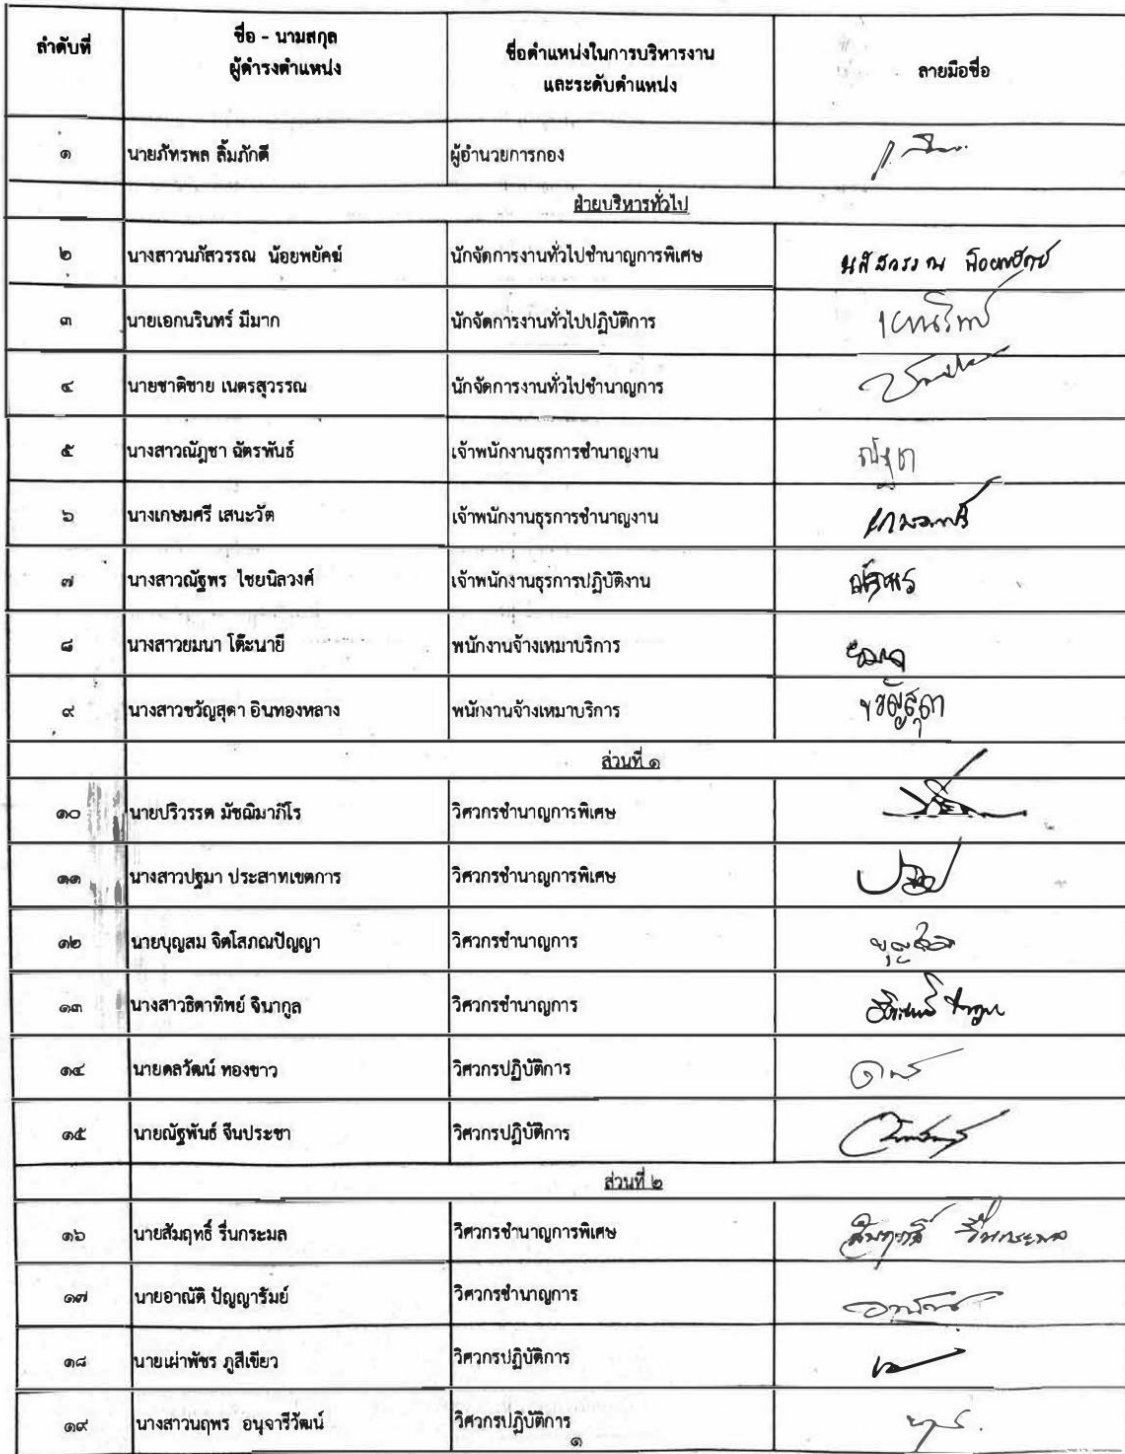 ลำดับที่ ชื่อ - นามสกุล ผู้ดำรงตำแหน่ง ชื่อตำแหน่งในการบริหารงาน และระดับตำแหน่ง ลายมือชื่อ
๑ นายภัทรพล ลิ้มภักดี ผู้อำนวยการกอง
ฝ่ายบริหารทั่วไป
๒ นางสาวนภัสวรรณ น้อยพยัคฆ์ นักจัดการงานทั่วไปชำนาญการพิเศษ นภัสวรรณ น้อยพยัคฆ์
๓ นายเอกนรินทร์ มีมาก นักจัดการงานทั่วไปปฏิบัติการ
๔ นายชาติชาย เนตรสุวรรณ นักจัดการงานทั่วไปชำนาญการ
๕ นางสาวณัฏชา ฉัตรพันธ์ เจ้าพนักงานธุรการชำนาญงาน
๖ นางเกษมศรี เสนะวัต เจ้าพนักงานธุรการชำนาญงาน
๗ นางสาวณัฐพร ไชยนิลวงศ์ เจ้าพนักงานธุรการปฏิบัติงาน ณัฐพร
๘ นางสาวยมนา โต๊ะนายี พนักงานจ้างเหมาบริการ ยมนา
๙ นางสาวขวัญสุดา อินทองหลาง พนักงานจ้างเหมาบริการ ขวัญสุดา
ส่วนที่ ๑
๑๐ นายปริวรรต มัชฌิมาภิโร วิศวกรชำนาญการพิเศษ
๑๑ นางสาวปฐมา ประสาทเขตการ วิศวกรชำนาญการพิเศษ
๑๒ นายบุญสม จิตโสภณปัญญา วิศวกรชำนาญการ
๑๓ นางสาวธิดาทิพย์ จินากูล วิศวกรชำนาญการ
๑๔ นายดลวัฒน์ ทองขาว วิศวกรปฏิบัติการ
๑๕ นายณัฐพันธ์ จีนประชา วิศวกรปฏิบัติการ
ส่วนที่ ๒
๑๖ นายสัมฤทธิ์ รื่นกระมล วิศวกรชำนาญการพิเศษ สัมฤทธิ์ รื่นกระมล
๑๗ นายอาณัติ ปัญญารัมย์ วิศวกรชำนาญการ
๑๘ นายเผ่าพัชร ภูสีเขียว วิศวกรปฏิบัติการ
๑๙ นางสาวนฤพร อนุจารีวัฒน์ วิศวกรปฏิบัติการ
๑